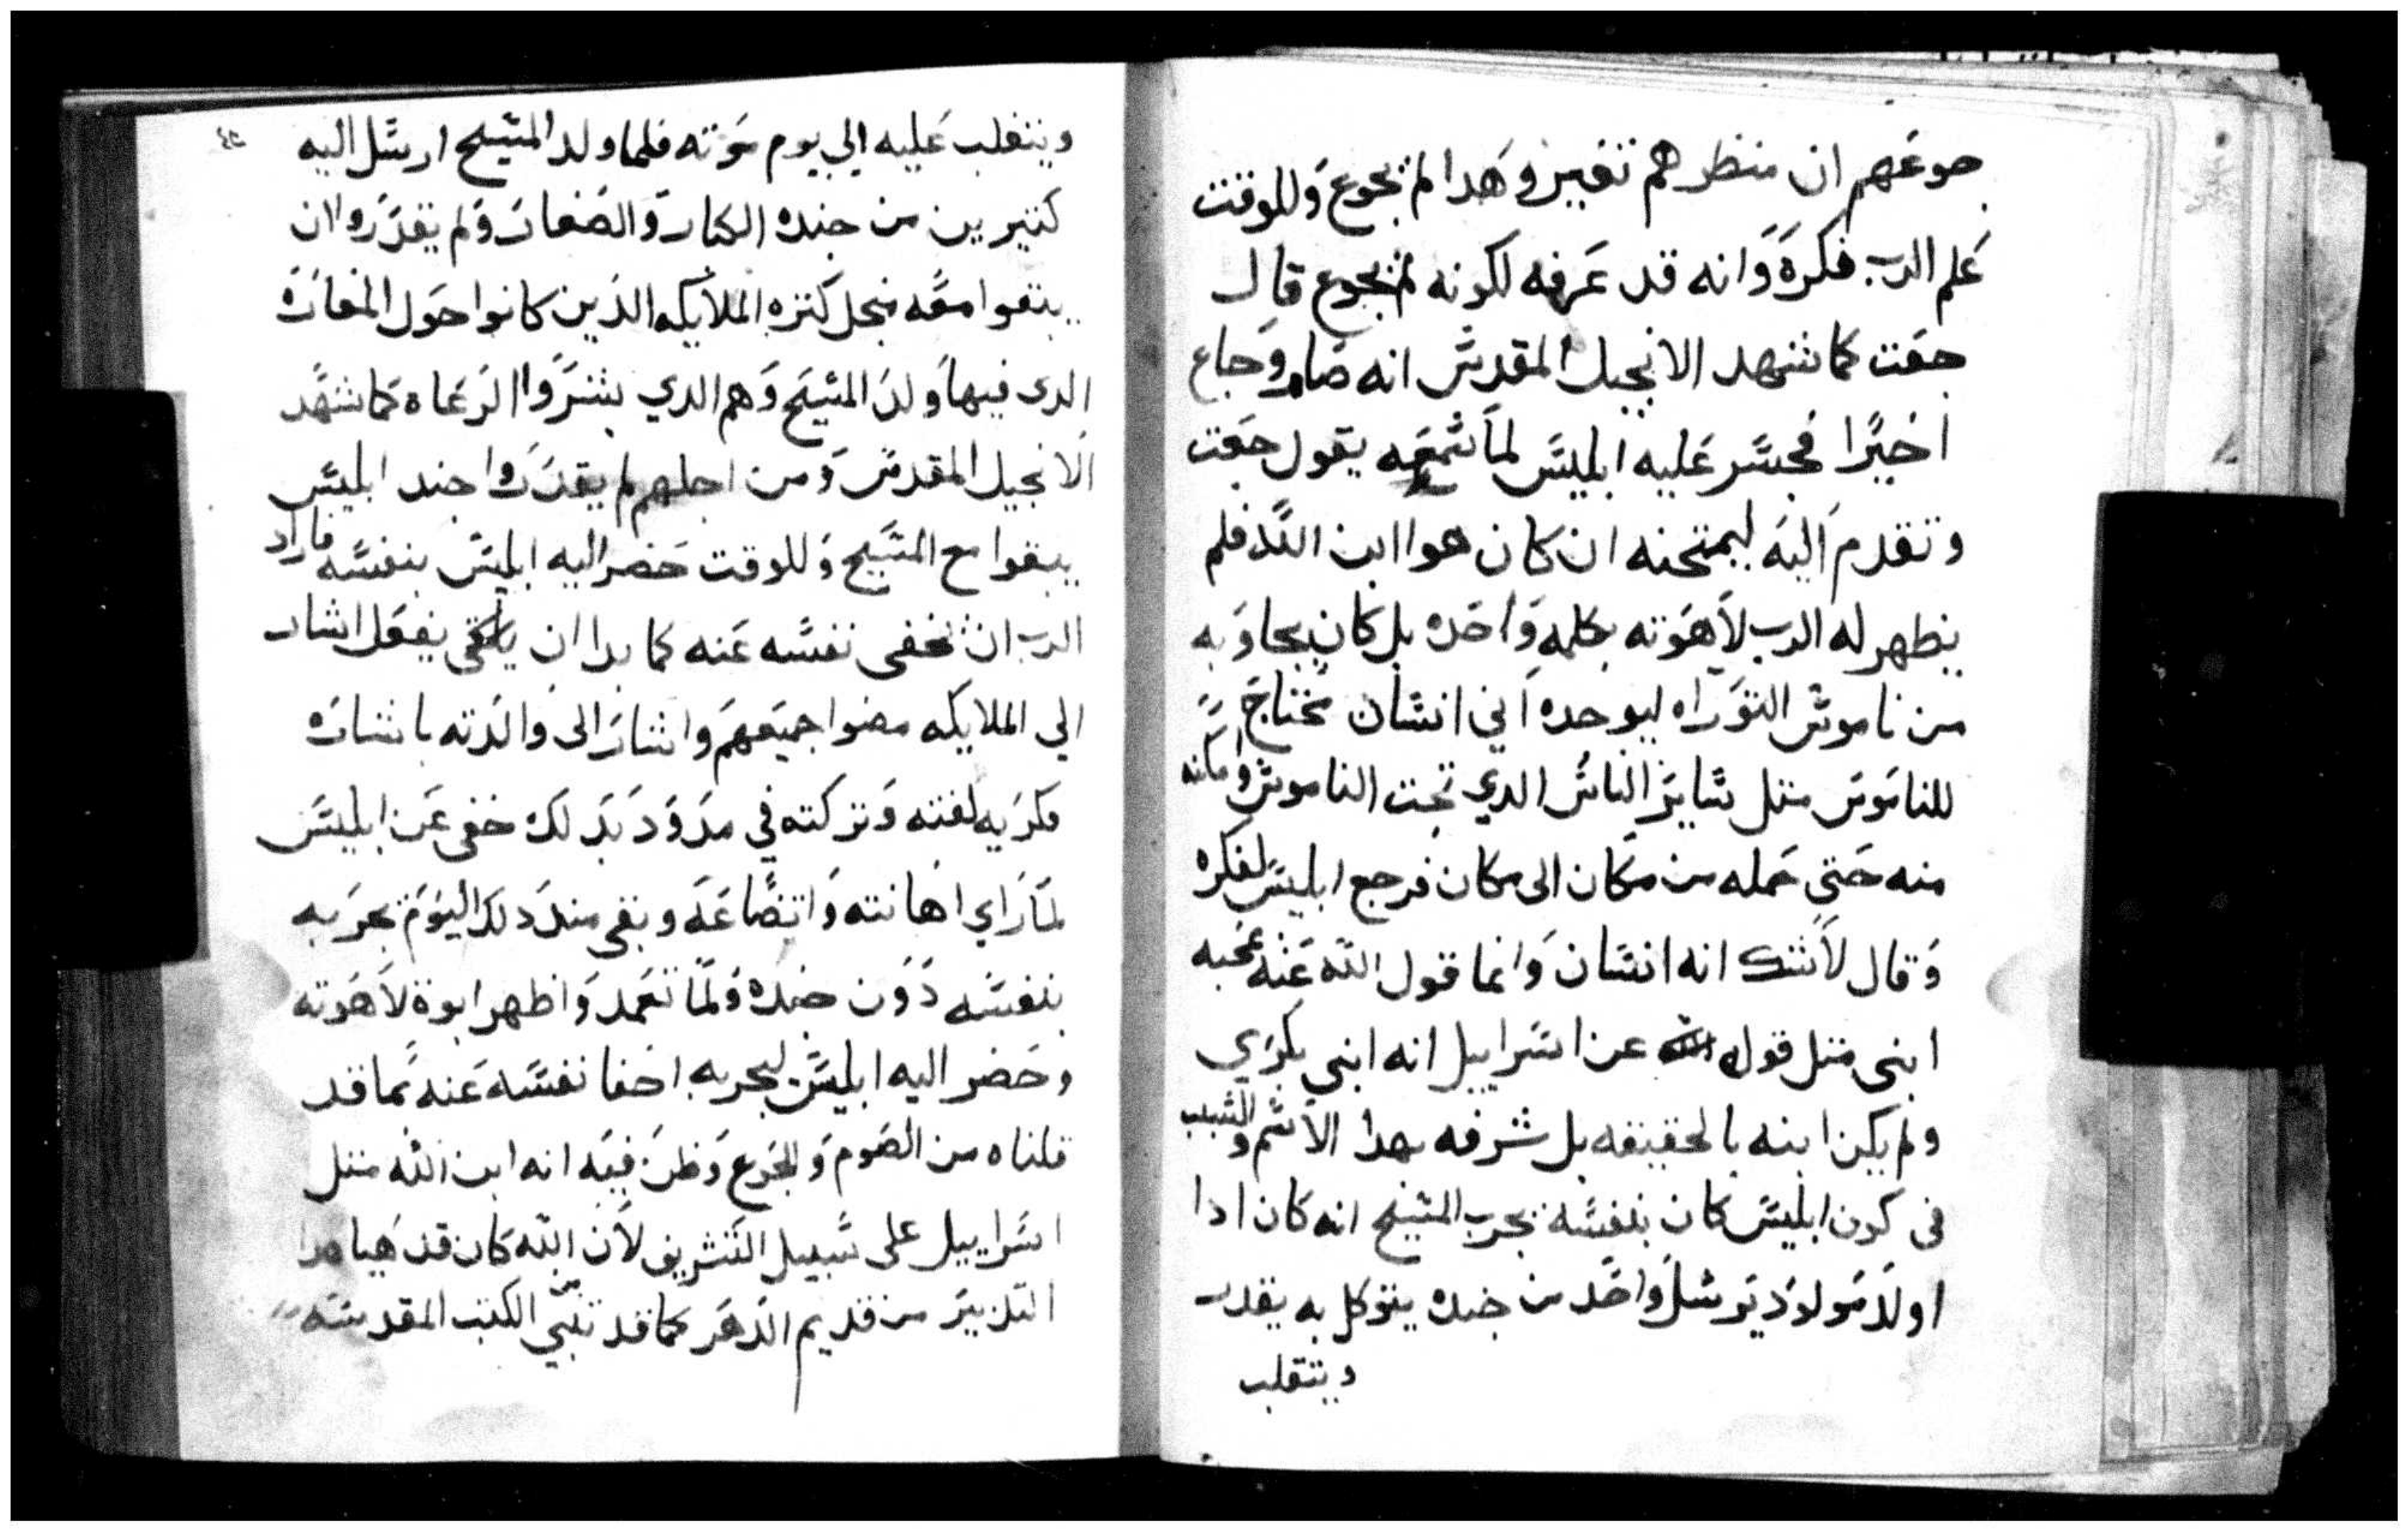 جوعهم ان منظرهم تغير وهدا لم يجوع وللوقت
علم الرب فكره وانه قد عرفه لكونه لم يجوع قال
جعت كما شهد الانجيل المقدس انه صام وجاع
اخيرًا فجسر عليه ابليس لما سمعه يقول جعت
وتقدم اليه ليمتحنه ان كان هوا ابن الله فلم
يظهر له الرب لاهوته بكلمه واحده بل كان يجاوبه
من ناموس التوراه ليوجده اني انسان محتاج
للناموس متل ساير الناس الدي تحت الناموس وامكنه
منه حتي حمله من مكان الى مكان فرجع ابليس لفكره
وقال لاشك انه انسان وانما قول الله عنه
ابنى متل قوله عن اسراييل انه ابني بكري
ولم يكن ابنه بالحقيقه بل شرفه بهدا الاسم والسبب
فى كون ابليس كان بنفسه يجرب المسيح انه كان ادا
اولد مولود يرسل واحد من جنده يتوكل به يقدر
ويتقلب
ويتقلب عليه الي يوم موته فلما ولد المسيح ارسل اليه
كتيرين من جنده الكبار والصغار ولم يقدروا ان
يبقوا معه منجل كتره الملايكه الدين كانوا حول المغاره
الدى فيها ولد المسيح وهم الدي بشروا الرعاه كما شهد
الانجيل المقدس ومن اجلهم لم يقدروا جند ابليس
يبقوا مع المسيح وللوقت حضر اليه ابليس بنفسه فاراد
الرب ان يخفى نفسه عنه كما بدا ان يفعل اشار
الي الملايكه مضوا جميعهم واشار الى والدته باشاره
فكريه لفته وتركته في مدود بدلك خفى عن ابليس
لما راي اهانته واتضاعه وبقى مند دلك اليوم يجربه
بنفسه دون جنده ولما تعمد واظهر ابوة لاهوته
وحضر اليه ابليس ليجربه اخفا نفسه عنه بما قد
قلناه من الصوم والجوع وظن فيه انه ابن الله متل
اسراييل على سبيل التشريف لان الله كان قد هيا هدا
التدبير من قديم الدهر كما قد تنبي الكتب المقدسه